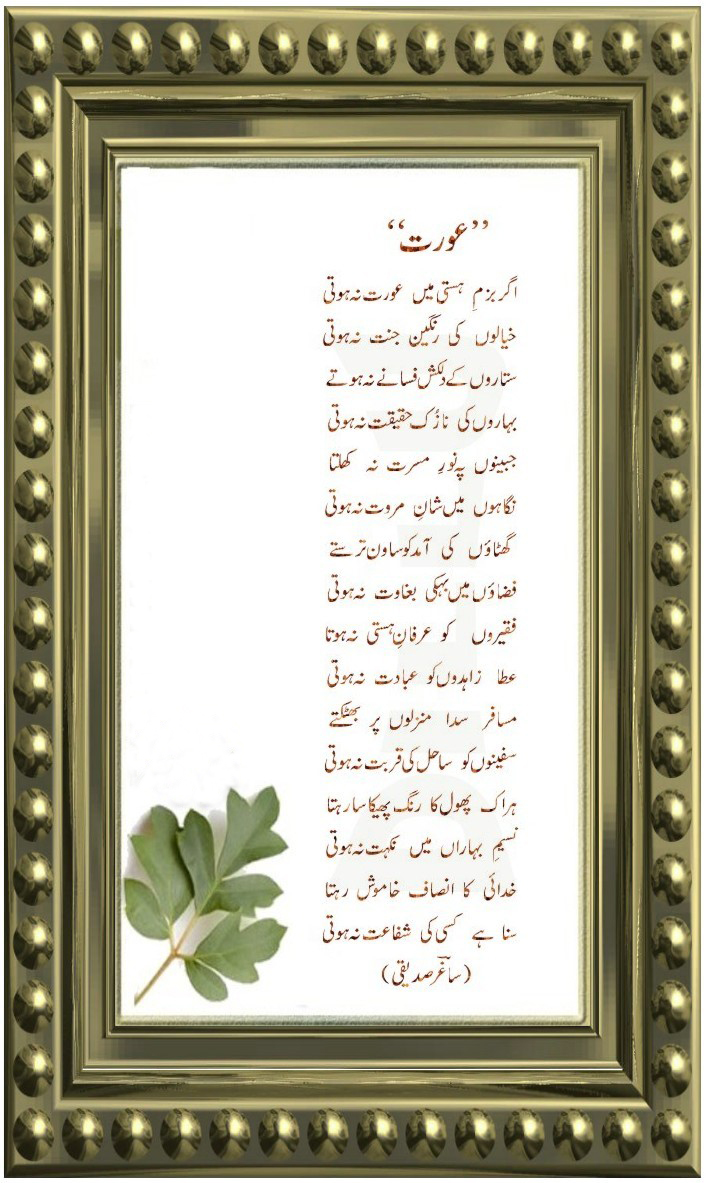 ”عورت“
اگر بزمِ ہستی میں عورت نہ ہوتی
خیالوں کی رنگین جنت نہ ہوتی
ستاروں کے دلکش فسانے نہ ہوتے
بہاروں کی نازُک حقیقت نہ ہوتی
جبینوں پہ نورِ مسرت نہ کھلتا
نگاہوں میں شانِ مروت نہ ہوتی
گھٹاؤں کی آمد کو ساون ترستے
فضاؤں میں بہکی بغاوت نہ ہوتی
فقیروں کو عرفانِ ہستی نہ ہوتا
عطا زاہدوں کو عبادت نہ ہوتی
مسافر سدا منزلوں پر بھٹکتے
سفینوں کو ساحل کی قربت نہ ہوتی
ہر اک پھول کا رنگ پھیکا سا رہتا
نسیمِ بہاراں میں نکہت نہ ہوتی
خدائی کا انصاف خاموش رہتا
سنا ہے کسی کی شفاعت نہ ہوتی
(ساغرؔ صدیقی)